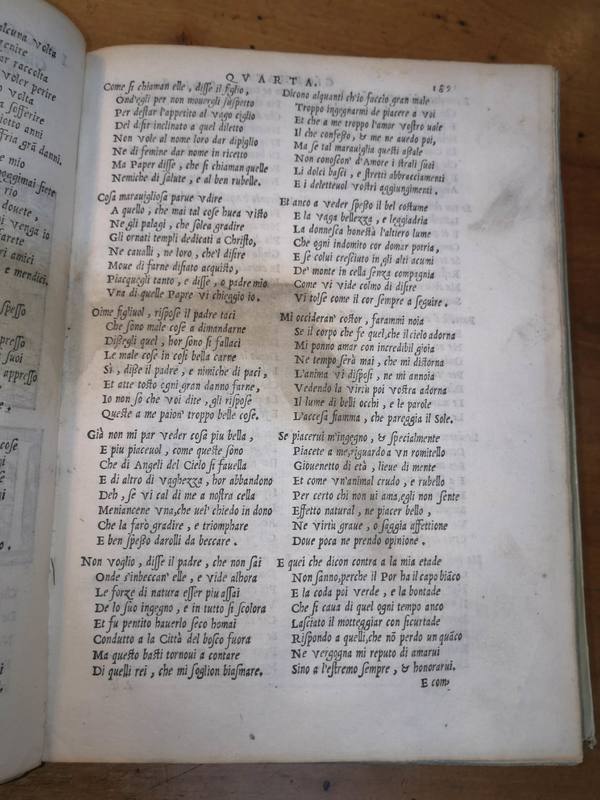 QVARTA.
189
Come si chiaman elle, disse il figlio,
Ond'egli per non mouergli suspetto
Per destar l'appetito al vago ciglio
Del disir inclinato a quel diletto
Non vole al nome lor dar dipiglio
Ne di femine dar nome in ricetto
Ma Paper disse, che si chiaman quelle
Nemiche di salute, e al ben rubelle.
Cosa marauigliosa parue vdire
A quello, che mai tal cose huea visto
Ne gli palagi, che solea gradire
Gli ornati templi dedicati a Christo,
Ne caualli, ne loro, che'l disire
Moue di farne disiato acquisto,
Piacquegli tanto, e disse, o padre mio
Vna di quelle Papre vi chieggio io.
Oime figliuol, rispose il padre taci
Che sono male cose a dimandarne
Dissegli quel, hor sono si fallaci
Le male cose in cosi bella carne
Sì, disse il padre, e nimiche di paci,
Et atte tosto ogni gran danno farne,
Io non so che voi dite, gli rispose
Queste a me paion' troppo belle cose.
Già non mi par veder cosa piu bella,
E piu piaceuol, come queste sono
Che di Angeli del Cielo si fauella
E di altro di vaghezza, hor abbandono
Deh, se vi cal di me a nostra cella
Meniancene vna, che uel' chiedo in dono
Che la farò gradire, e triomphare
E ben spesso darolli da beccare.
Non voglio, disse il padre, che non sai
Onde s'inbeccan' elle, e vide alhora
Le forze di natura esser piu assai
De lo suo ingegno, e in tutto si scolora
Et fu pentito hauerlo seco homai
Condutto a la Città del bosco fuora
Ma questo basti tornoui a contare
Di quelli rei, che mi soglion biasmare.
Dicono alquanti ch'io faccio gran male
Troppo ingegnarmi de piacere a voi
Et che a me troppo l'amor vostro uale
Il che confesso, & me ne auedo poi,
Ma se tal marauiglia questi assale
Non conoscon' d'Amore i strali suoi
Li dolci basci, e stretti abbracciamenti
E i deletteuol vostri aggiungimenti.
Et anco a veder spesso il bel costume
E la vaga bellezza, e leggiadria
La donnesca honestà l'altiero lume
Che ogni indomito cor domar potria,
E se colui cresciuto in gli alti acumi
De' monte in cella senza compagnia
Come vi vide colmo di disire
Vi tolse come il cor sempre a seguire.
Mi occideran' costor, farammi noia
Se il corpo che fe quel, che il cielo adorna
Mi ponno amar con incredibil gioia
Ne tempo serà mai, che mi distorna
L'anima vi disposi, ne mi annoia
Vedendo la virtù poi vostra adorna
Il lume di belli occhi, e le parole
L'accesa fiamma, che pareggia il Sole.
Se piacerui m'ingegno, & specialmente
Piacete a me, riguardo a vn romitello
Giouenetto di età, lieue di mente
Et come vn'animal crudo, e rubello
Per certo chi non ui ama, egli non sente
Effetto natural, ne piacer bello,
Ne virtù graue, o saggia affettione
Doue poca ne prendo opinione.
E quei che dicon contra a la mia etade
Non sanno, perche il Por ha il capo biãco
E la coda poi verde, e la bontade
Che si caua di quel ogni tempo anco
Lasciato il motteggiar con sicurtade
Rispondo a quelli, che nõ perdo un quãco
Ne vergogna mi reputo di amarui
Sino a l'estremo sempre, & honorarui.
E com